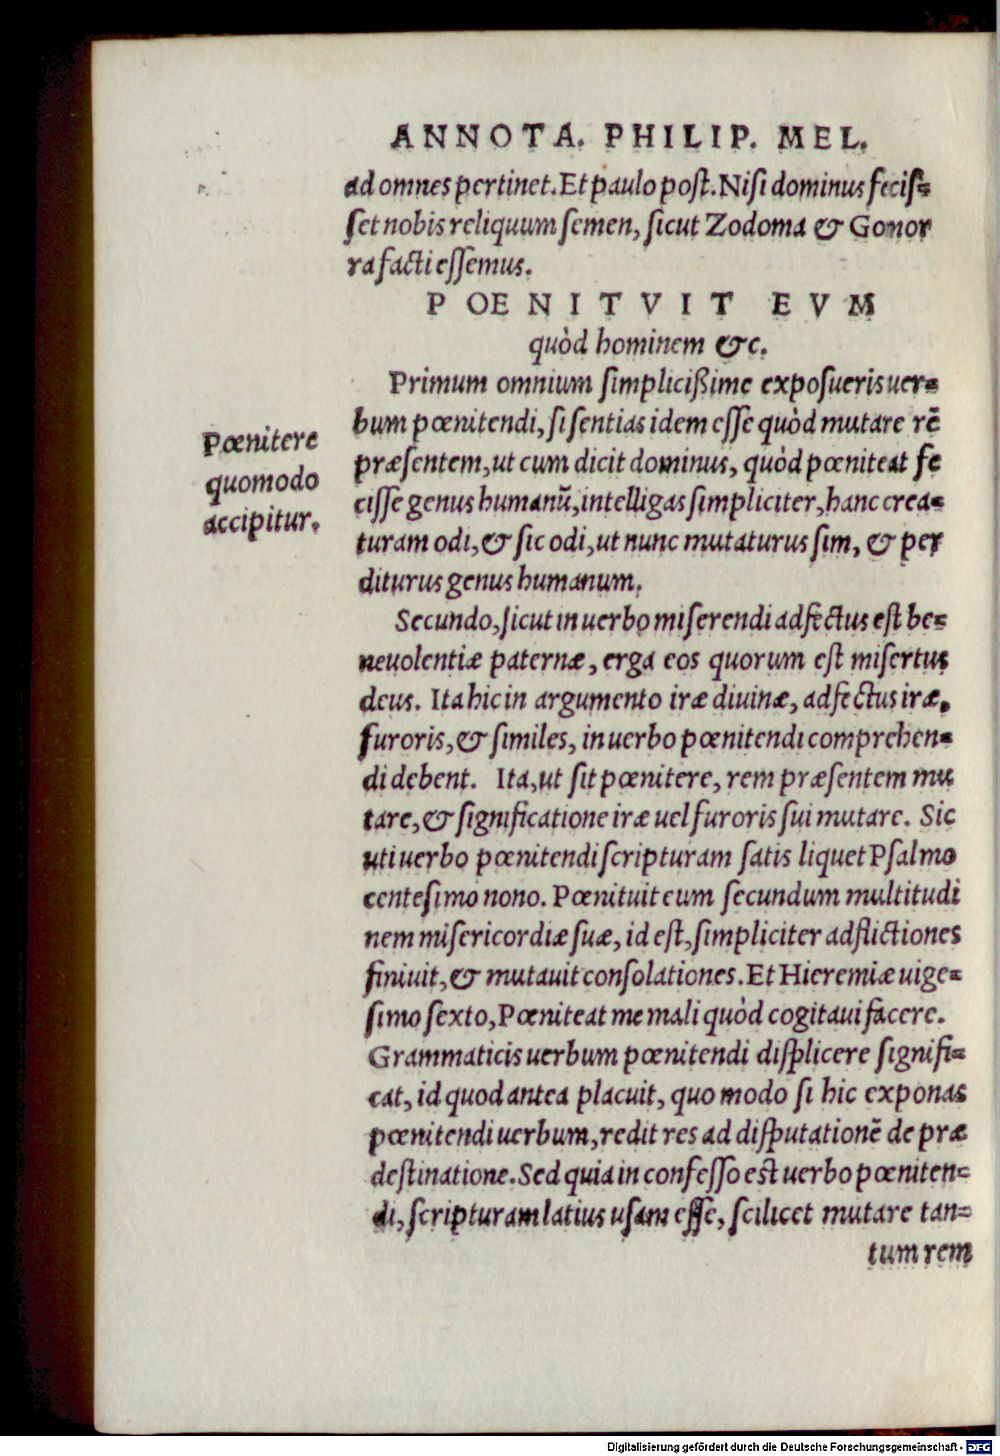 ANNOTA. PHILIP. MEL.
ad omnes pertinet. Et paulo post. Nisi dominus fecis-
set nobis reliquum semen, sicut Zodoma & Gonor
ra facti essemus.
POENITVIT EVM
quòd hominem &c.
Primum omnium simplicißime exposueris uer-
bum pœnitendi, si sentias idem esse quòd mutare rē
præsentem, ut cum dicit dominus, quòd pœniteat fe
cisse genus humanū, intelligas simpliciter, hanc crea-
turam odi, & sic odi, ut nunc mutaturus sim, & per
diturus genus humanum.
Pœnitere
quomodo
accipitur.
Secundo, sicut in uerbo miserendi adfectus est be-
neuolentiæ paternæ, erga eos quorum est misertus
deus. Ita hic in argumento iræ diuinæ, adfectus iræ,
furoris, & similes, in uerbo pœnitendi comprehen-
di debent. Ita, ut sit pœnitere, rem præsentem mu
tare, & significatione iræ uel furoris sui mutare. Sic
uti uerbo pœnitendi scripturam satis liquet Psalmo
centesimo nono. Pœnituit eum secundum multitudi
nem misericordiæ suæ, id est, simpliciter adflictiones
finiuit, & mutauit consolationes. Et Hieremiæ uige-
simo sexto, Pœniteat me mali quòd cogitaui facere.
Grammaticis uerbum pœnitendi displicere signifi-
cat, id quod antea placuit, quo modo si hic exponas
pœnitendi uerbum, redit res ad disputationē de præ
destinatione. Sed quia in confesso est uerbo pœniten-
di, scripturam latius usam esse, scilicet mutare tan-
tum rem
Digitalisierung gefördert durch die Deutsche Forschungsgemeinschaft - DFG